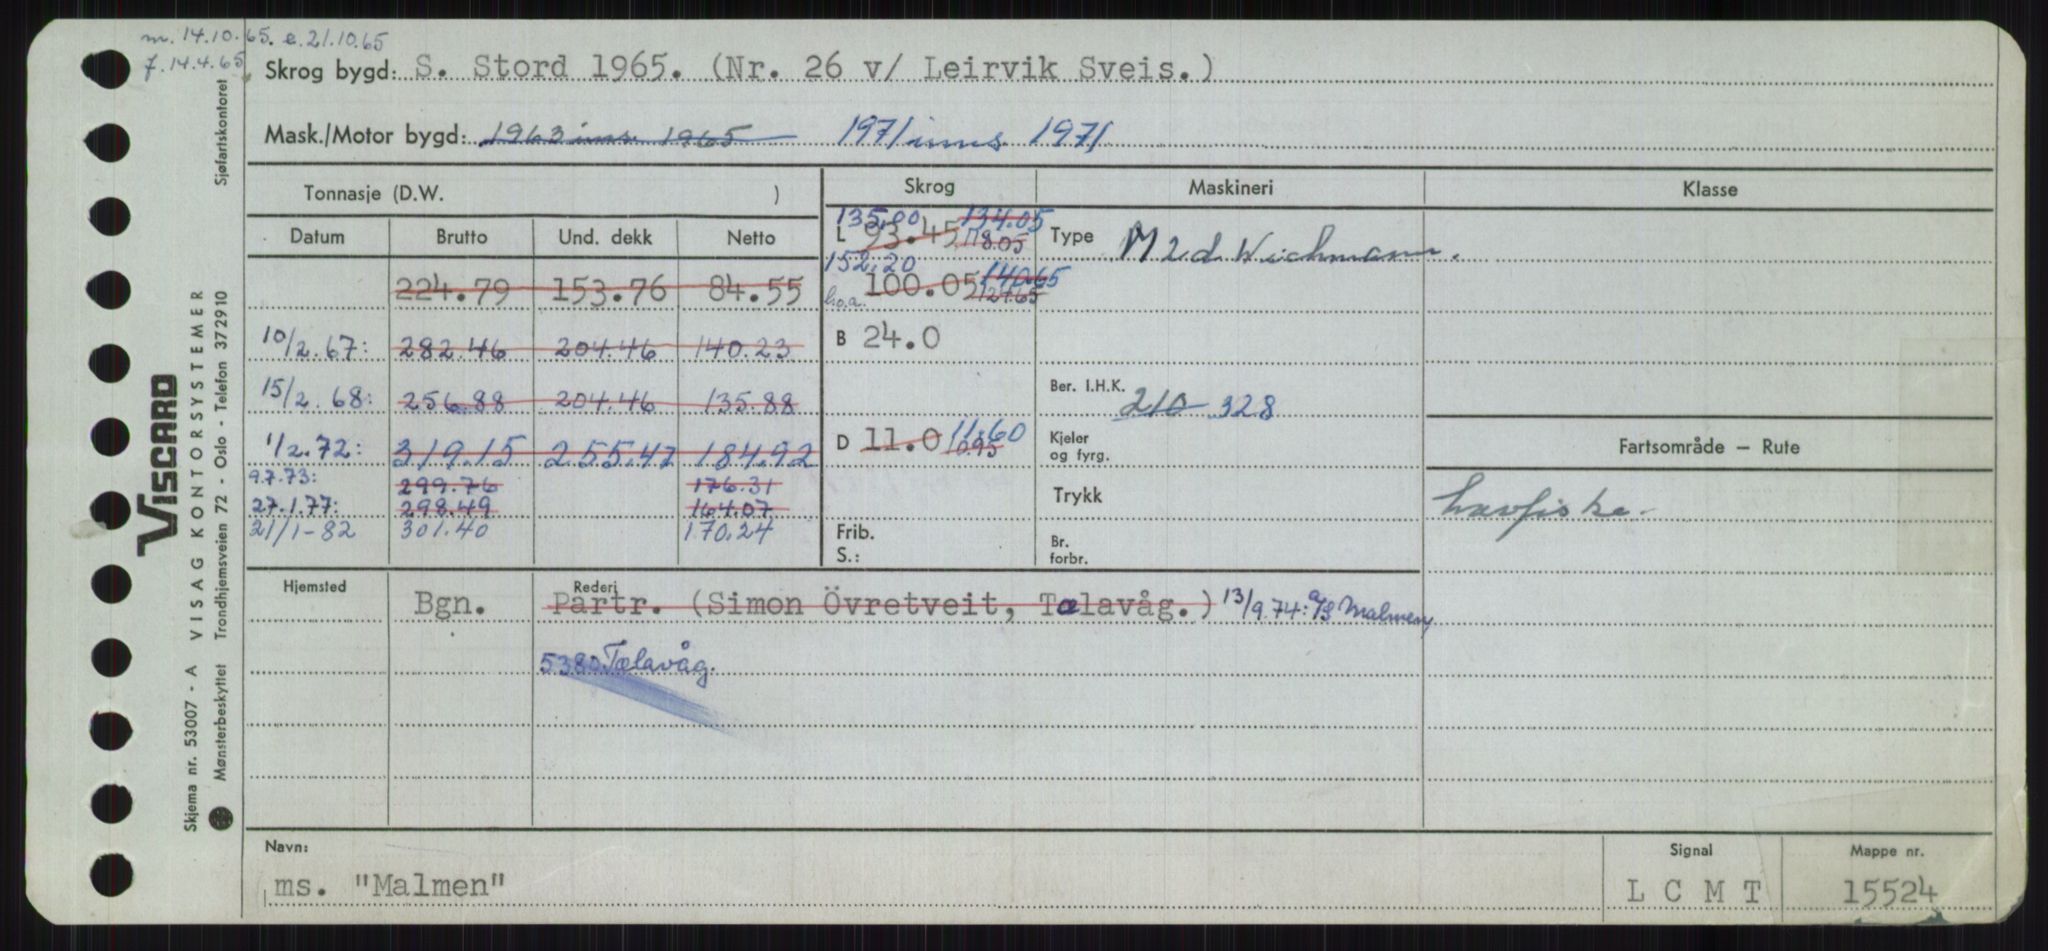 m. 14.10.65. e. 21.10.65
f. 14.4.65
Skrog bygd: S. Stord 1965. (Nr. 26 v/ Leirvik Sveis.)
Mask./Motor bygd: 1963 ins. 1965 1971 inns. 1971
Tonnasje (D.W. )
Skrog Maskineri Klasse
Datum Brutto Und. dekk Netto
135,00 134.05
L 93.45 118.05
Type M 2 d. Wichmann.
224.79 153.76 84.55
152,20 140.65
l.o.a. 100.05 127.65
10/2.67: 282.46 204.46 140.23
B 24.0
15/2.68: 256.88 204.46 135.88
Ber. I.H.K. 210 328
1/2.72: 319.15 255.47 184.92
D 11.0 11.60 10.95
Kjeler
og fyrg.
Fartsområde – Rute
9.7.73: 299.76 176.31
Trykk
27.1.77: 298.49 164.07
havfiske.
21/1-82 301.40 170.24
Frib.
S.:
Br.
forbr.
Hjemsted Rederi
Bgn. Partr. (Simon Övretveit, Tælavåg.) 13/9.74: a/s Malmen,
5380 Tælavåg.
Navn:
ms. "Malmen"
Signal
L C M T
Mappe nr.
15524
Sjøfartskontoret
VISCARD
VISAG KONTORSYSTEMER
Trondhjemsveien 72 - Oslo - Telefon 372910
Skjema nr. 53007 - A
Mønsterbeskyttet